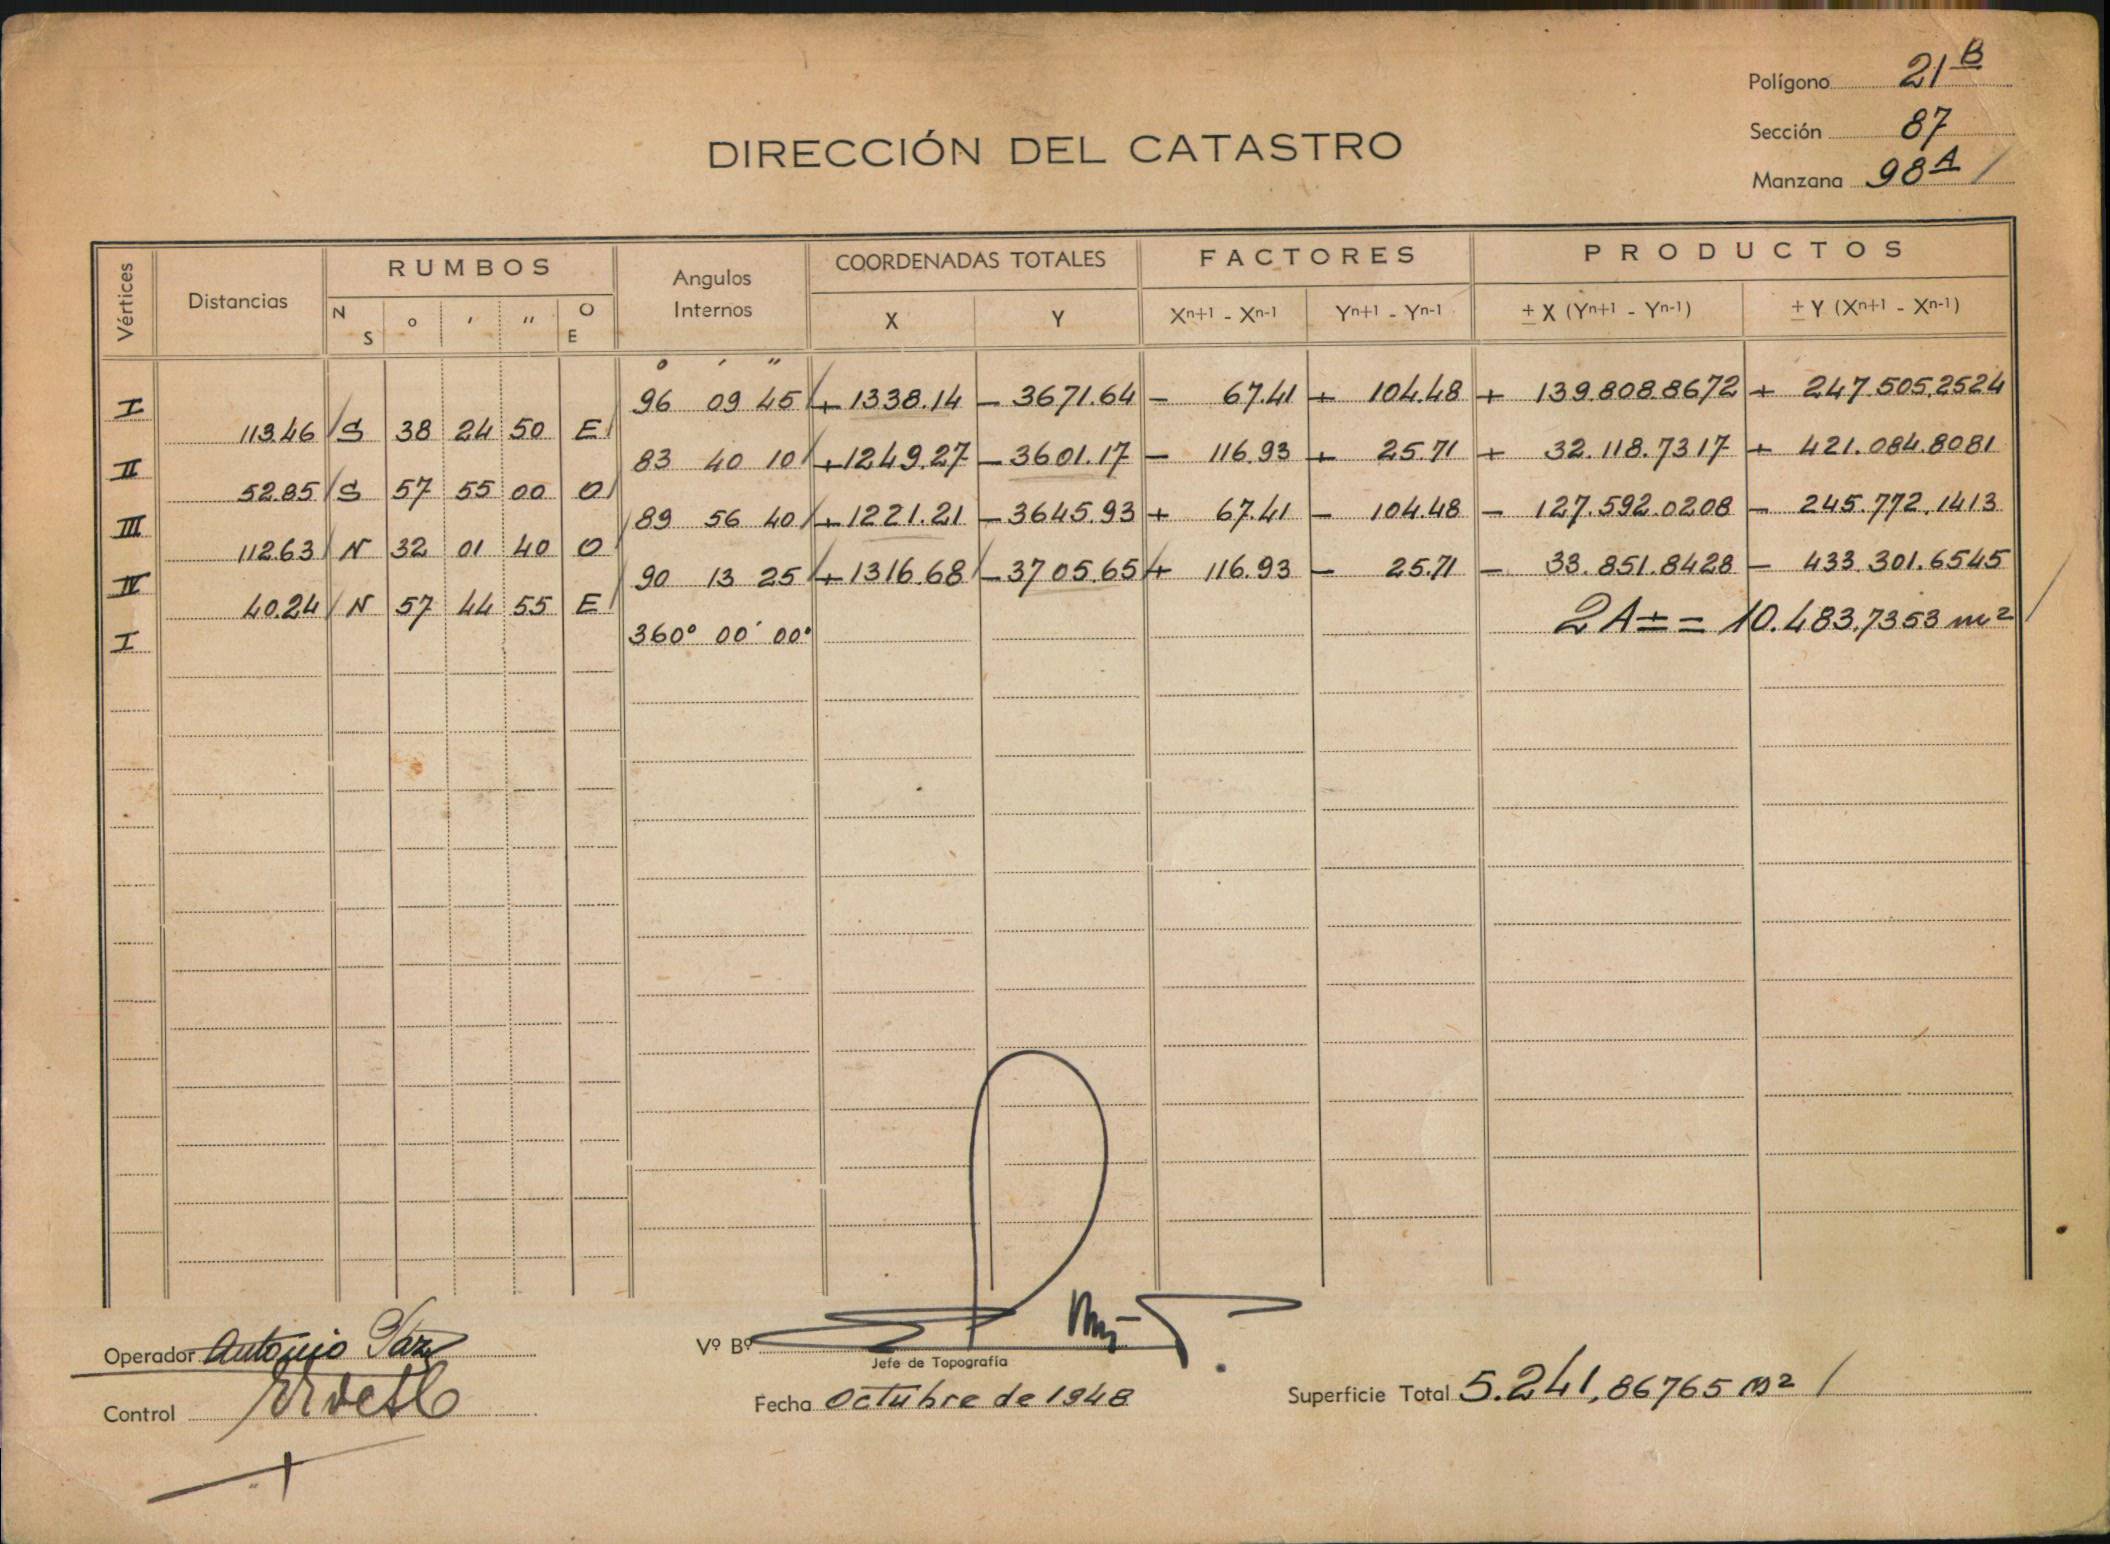 Polígono 21 B
Sección 87
Manzana 98 A /
DIRECCIÓN DEL CATASTRO
Vértices Distancias RUMBOS Angulos Internos COORDENADAS TOTALES FACTORES PRODUCTOS
N S ° ' " O E X Y Xn+1 - Xn-1 Yn+1 - Yn-1 ± X (Yn+1 - Yn-1) ± Y (Xn+1 - Xn-1)
° ' "
I 96 09 45 + 1338.14 - 3671.64 - 67.41 + 104.48 + 139.808.8672 + 247.505,2524
113.46 S 38 24 50 E
II 83 40 10 + 1249.27 - 3601.17 - 116.93 + 25.71 + 32.118.7317 + 421.084.8081
52.85 S 57 55 00 O
III 89 56 40 + 1221.21 - 3645.93 + 67.41 - 104.48 - 127.592.0208 - 245.772,1413
112.63 N 32 01 40 O
IV 90 13 25 + 1316.68 - 3705.65 + 116.93 - 25.71 - 33.851.8428 - 433.301.6545
40.24 N 57 44 55 E
I 360° 00' 00" 2A ± = 10.483,7353 m²
Operador Antonio
Control
Vº Bº
Jefe de Topografía
Fecha Octubre de 1948
Superficie Total 5.241,86765 m² /